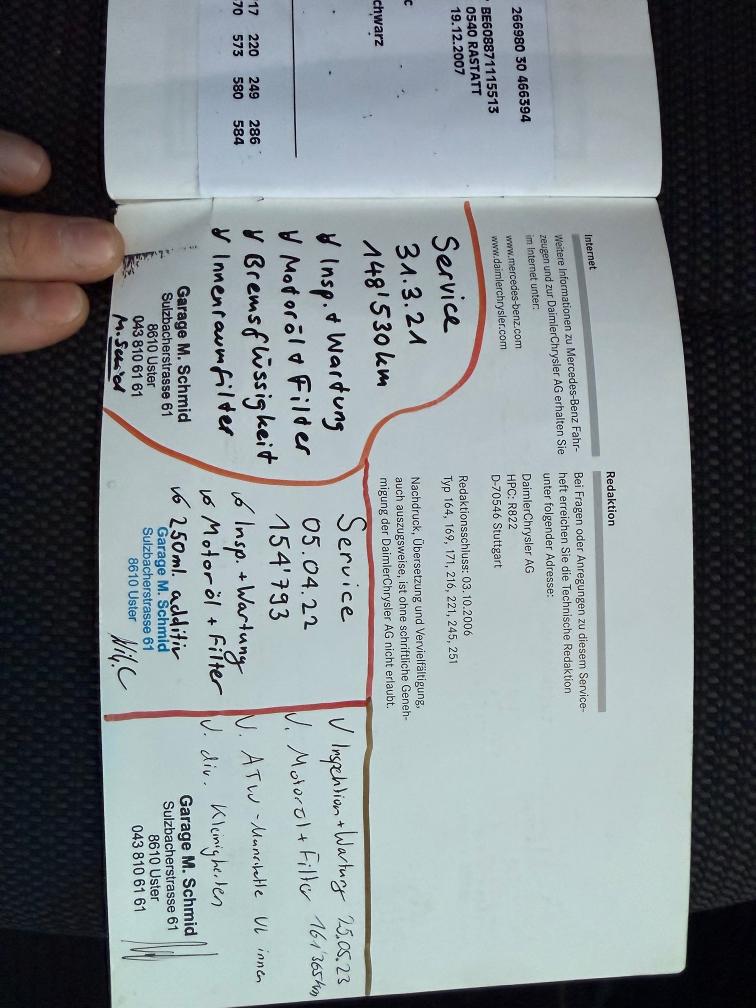 266980 30 466394
BE6088871115513
0540 RASTATT
19.12.2007
chwarz
17 220 249 286
70 573 580 584
Internet
Weitere Informationen zu Mercedes-Benz Fahr-
zeugen und zur DaimlerChrysler AG erhalten Sie
im Internet unter:
www.mercedes-benz.com
www.daimlerchrysler.com
Redaktion
Bei Fragen oder Anregungen zu diesem Service-
heft erreichen Sie die Technische Redaktion
unter folgender Adresse:
DaimlerChrysler AG
HPC: R822
D-70546 Stuttgart
Redaktionsschluss: 03.10.2006
Typ 164, 169, 171, 216, 221, 245, 251
Nachdruck, Übersetzung und Vervielfältigung,
auch auszugsweise, ist ohne schriftliche Geneh-
migung der DaimlerChrysler AG nicht erlaubt.
Service
31.3.21
148'530 km
Insp. + Wartung
Motoröl + Filter
Bremsflüssigkeit
Innenraumfilter
Garage M. Schmid
Sulzbacherstrasse 61
8610 Uster
043 810 61 61
Service
05.04.22
154'793
Insp. + Wartung
Motoröl + Filter
250ml. additiv
Garage M. Schmid
Sulzbacherstrasse 61
8610 Uster
Inspektion + Wartung 25.05.23
Motoröl + Filter 161'365 km
ATW - Manschette VL innen
div. Kleinigkeiten
Garage M. Schmid
Sulzbacherstrasse 61
8610 Uster
043 810 61 61